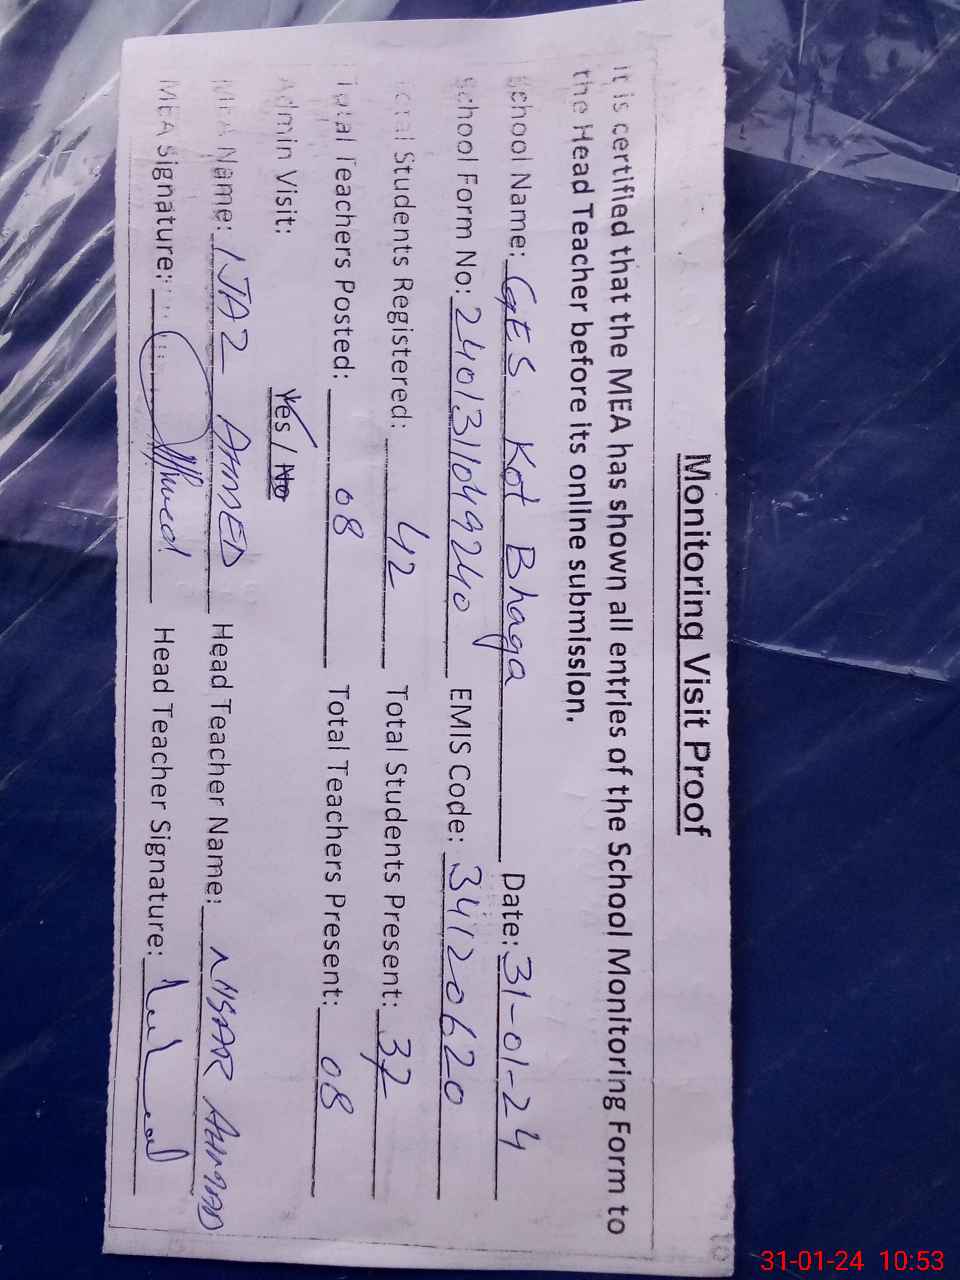 Monitoring Visit Proof
It is certified that the MEA has shown all entries of the School Monitoring Form to
the Head Teacher before its online submission.
School Name: GES Kot Bhaga Date: 31-01-24
School Form No: 2401311049240 EMIS Code: 34120620
Total Students Registered: 42 Total Students Present: 37
Total Teachers Posted: 08 Total Teachers Present: 08
Admin Visit: Yes / No
MEA Name: IJAZ AHMED Head Teacher Name: NISAR AHMAD
MEA Signature: Head Teacher Signature:
31-01-24 10:53